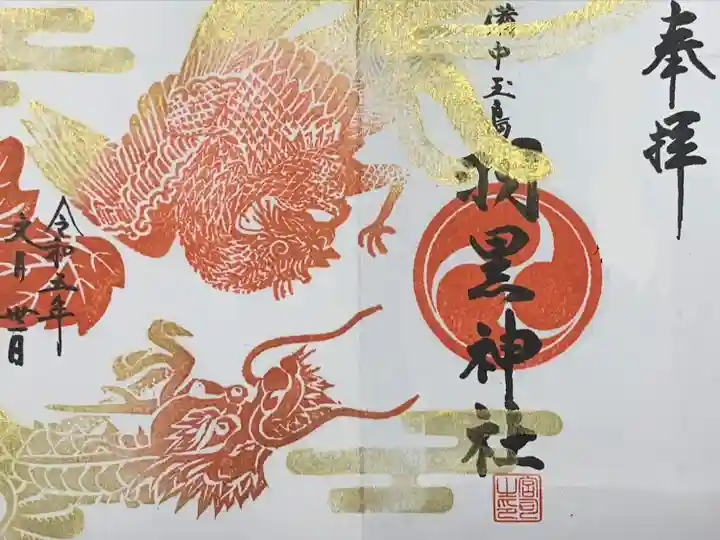 奉拝
備中玉島
羽黒神社
令和五年
文月卅一日
宮司之印